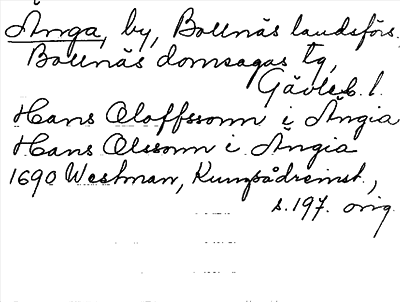 Änga, by, Bollnäs landsförs.
Bollnäs domsagas tg,
Gävleb. l.
Hans Oloffsson i Ängia
Hans Olsson i Ängia
1690 Westman,
s. 197. orig.